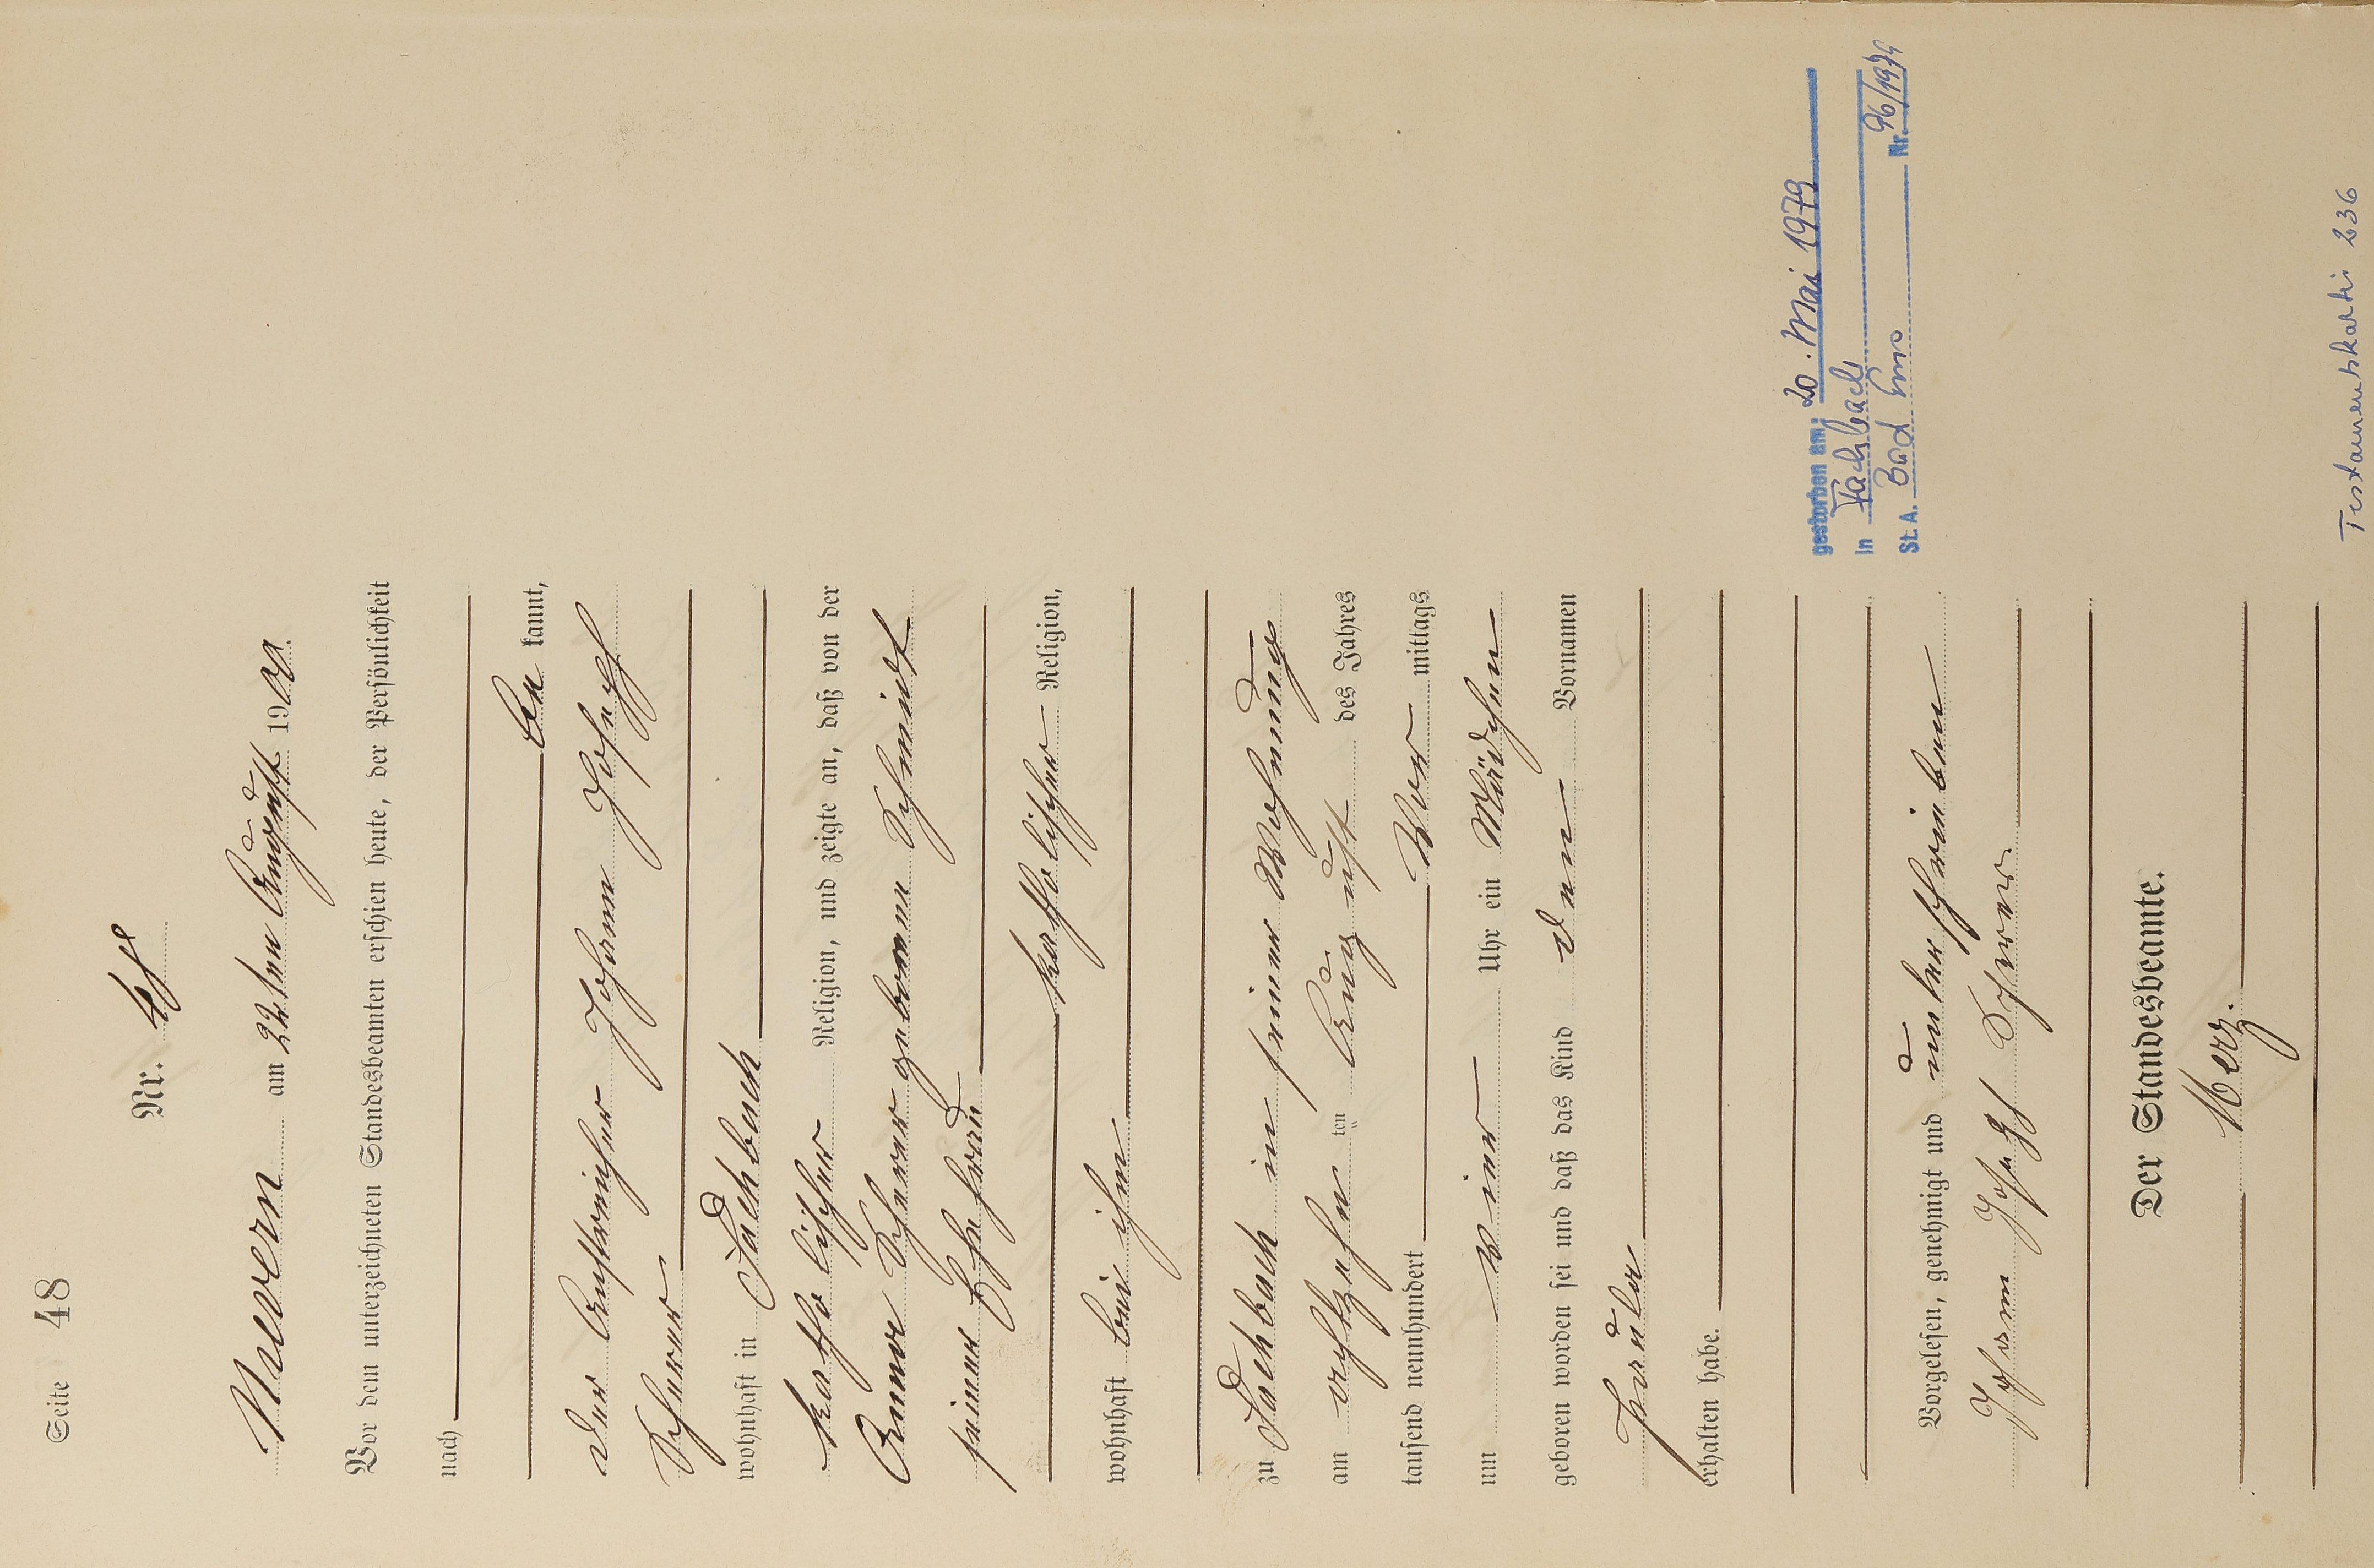 Seite 48
Nr. 48
Nievern am 22ten August 1900.
Vor dem unterzeichneten Standesbeamten erschien heute, der Persönlichkeit
nach
be kannt,
der Anstreicher Johann Joseph
Scherer
wohnhaft in Fachbach
katholischer Religion, und zeigte an, daß von der
Anna Scherer geborene Schmidt
seiner Ehefrau
katholischer Religion,
wohnhaft bei ihm
zu Fachbach in seiner Wohnung
am achtzehn ten August des Jahres
tausend neunhundert Vor mittags
um vier Uhr ein Mädchen
geboren worden sei und daß das Kind den Vornamen
Paula
erhalten habe.
Vorgelesen, genehmigt und unterschrieben
Johann Joseph Scherer.
Der Standesbeamte.
Merz.
gestorben am: 20. Mai 1979
in Fachbach
St. A. Bad Ems Nr. 96/1979
Testamentskartei 236